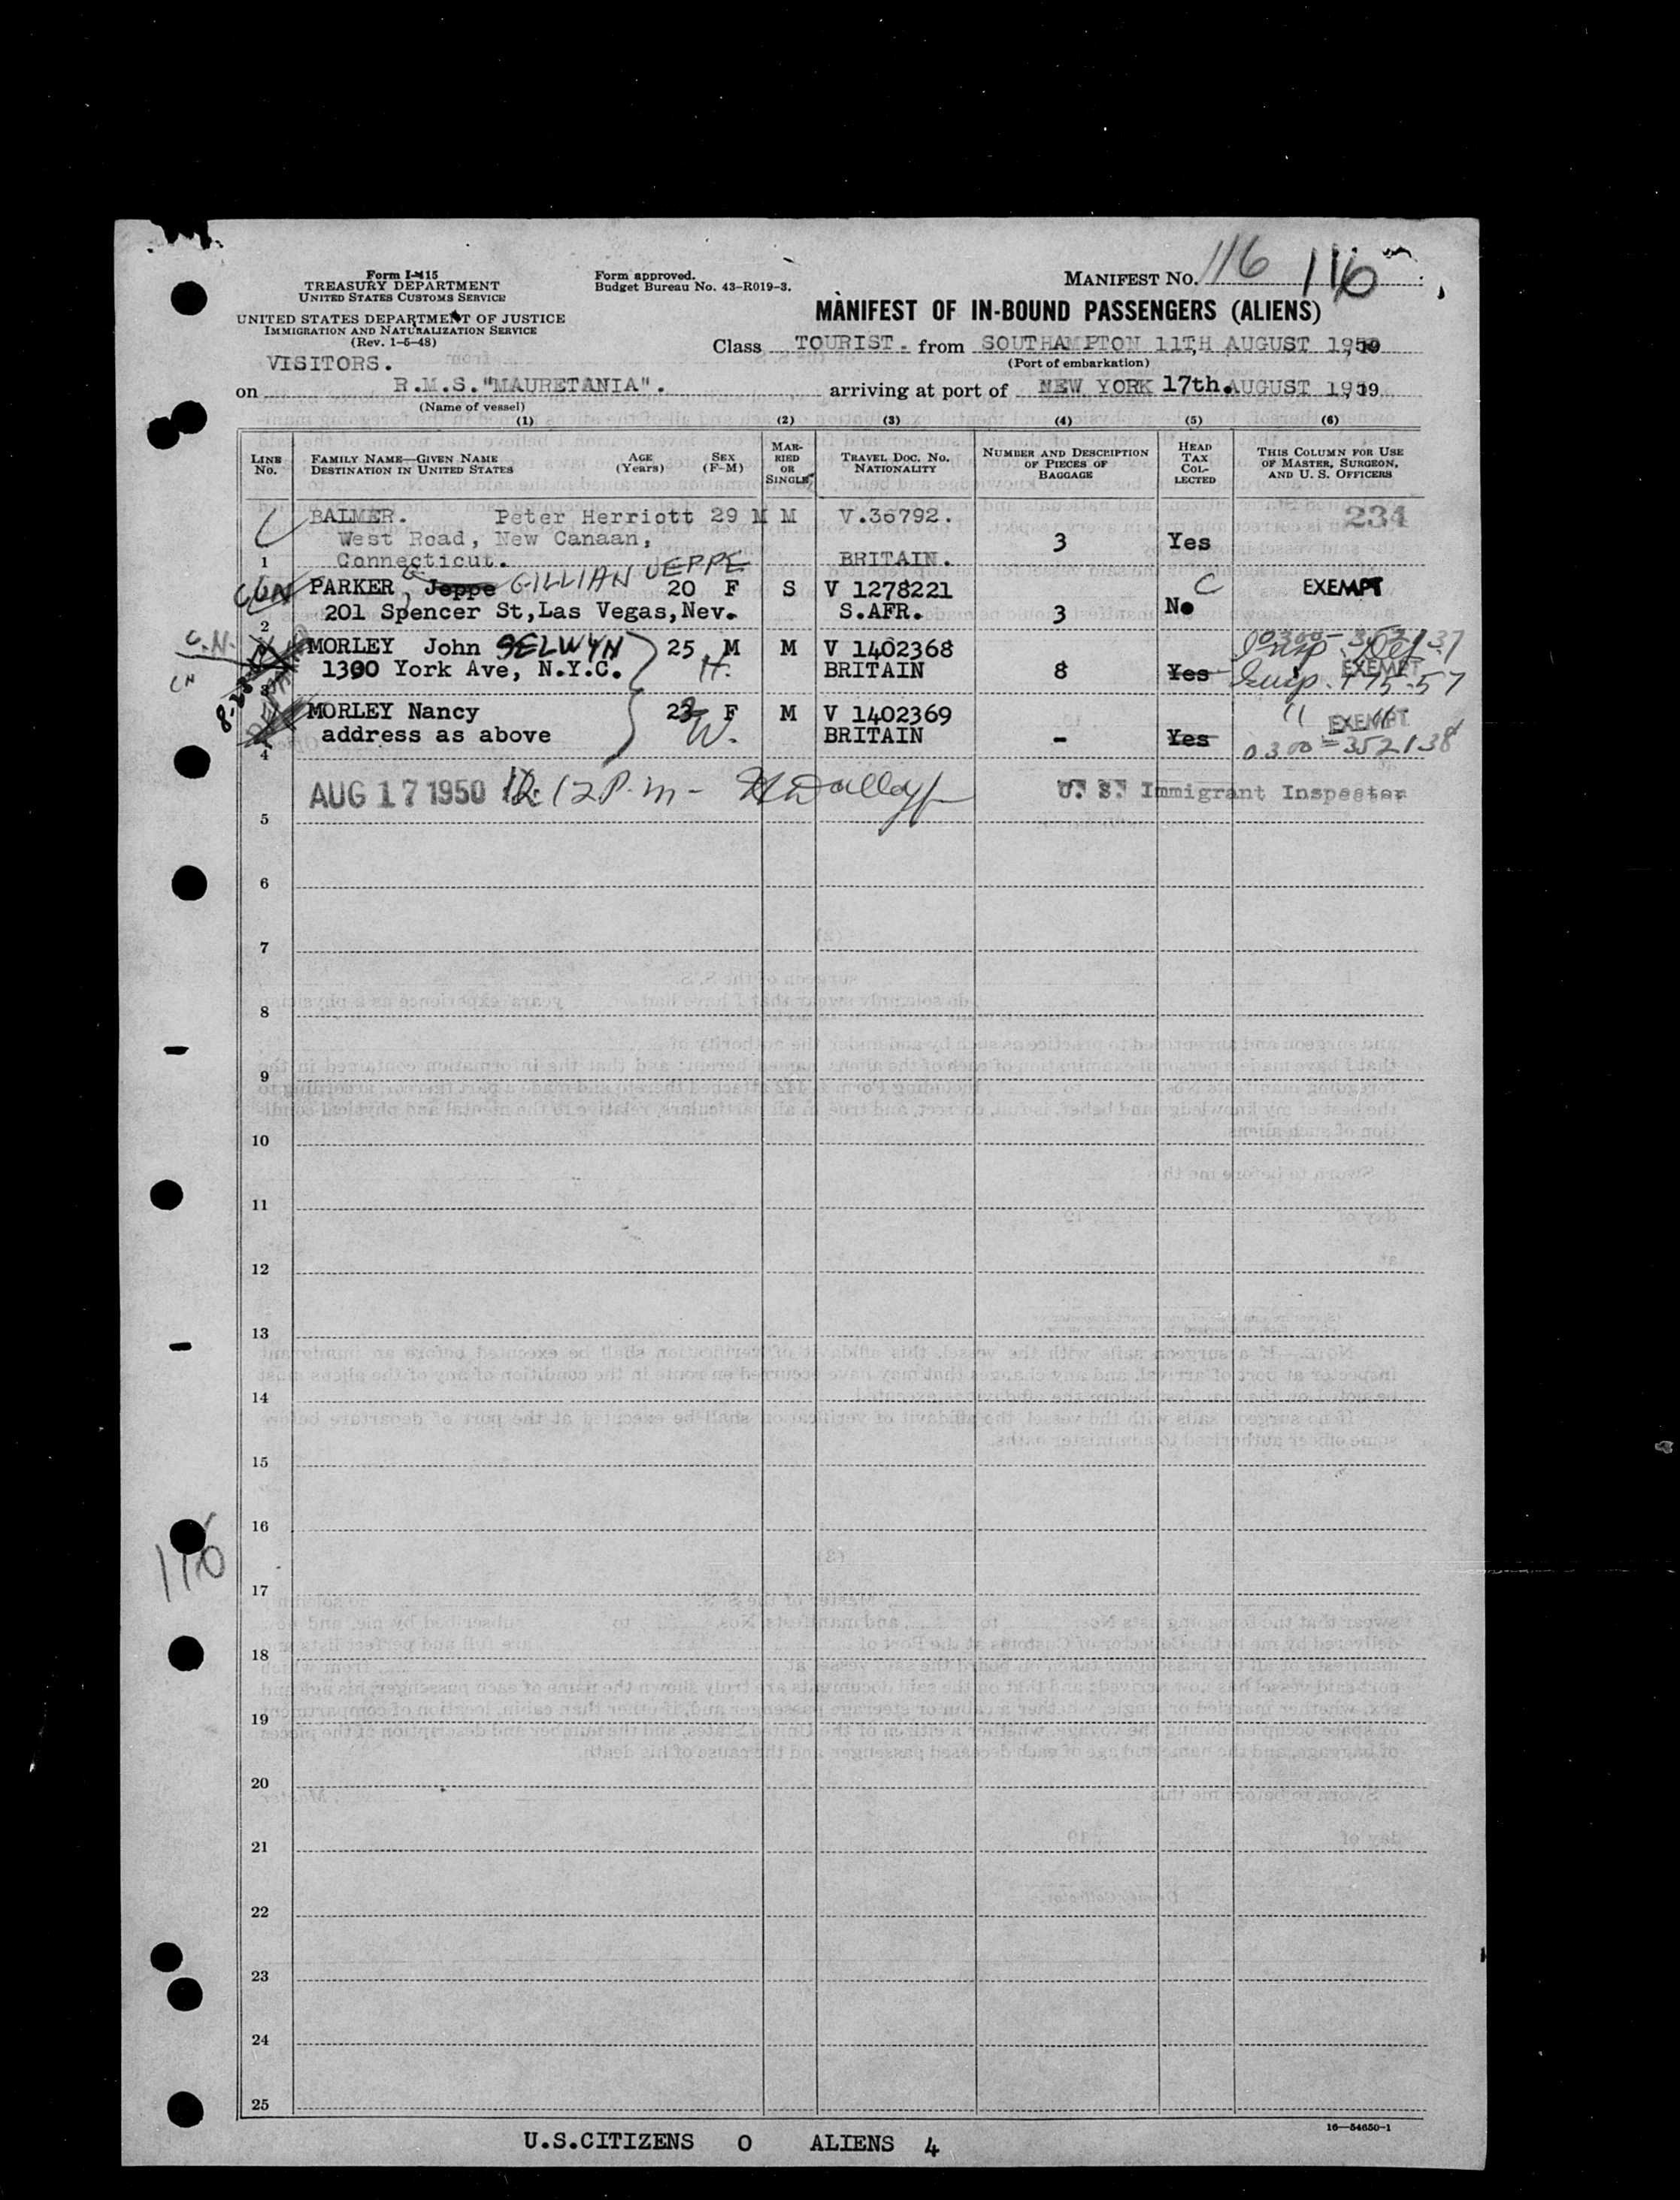 Form I-415
TREASURY DEPARTMENT
UNITED STATES CUSTOMS SERVICE
UNITED STATES DEPARTMENT OF JUSTICE
IMMIGRATION AND NATURALIZATION SERVICE
(Rev. 1-5-48)
Form approved.
Budget Bureau No. 43-R019-3.
MANIFEST NO. 116 116
MANIFEST OF IN-BOUND PASSENGERS (ALIENS)
Class TOURIST. from SOUTHAMPTON 11TH AUGUST 1950
(Port of embarkation)
VISITORS.
on R.M.S."MAURETANIA". arriving at port of NEW YORK 17th. AUGUST 19
(Name of vessel)
(1) (2) (3) (4) (5) (6)
LINE NO.
FAMILY NAME—GIVEN NAME
DESTINATION IN UNITED STATES
AGE (Years)
SEX (F-M)
MARRIED OR SINGLE
TRAVEL DOC. NO. NATIONALITY
NUMBER AND DESCRIPTION OF PIECES OF BAGGAGE
HEAD TAX COLLECTED
THIS COLUMN FOR USE OF MASTER, SURGEON, AND U. S. OFFICERS
BALMER. Peter Herriott 29 M M V.36792. 234
West Road, New Canaan, 3 Yes
1 Connecticut. BRITAIN.
PARKER, Jeppe GILLIAN JEPPE 20 F S V 1278221 C EXEMPT
201 Spencer St,Las Vegas,Nev. S.AFR. 3 No
2
C.N. MORLEY John SELWYN 25 M M V 1402368 0300-352137
CN 1300 York Ave, N.Y.C. H. BRITAIN 8 Yes EXEMPT
3
MORLEY Nancy 23 F M V 1402369 EXEMPT
address as above W. BRITAIN - Yes 0300-352138
4
AUG 17 1950 12 P.m - U. S. Immigrant Inspector
5
6
7
8
9
10
11
12
13
14
15
16
116
17
18
19
20
21
22
23
24
25
16—54650-1
U.S.CITIZENS 0 ALIENS 4